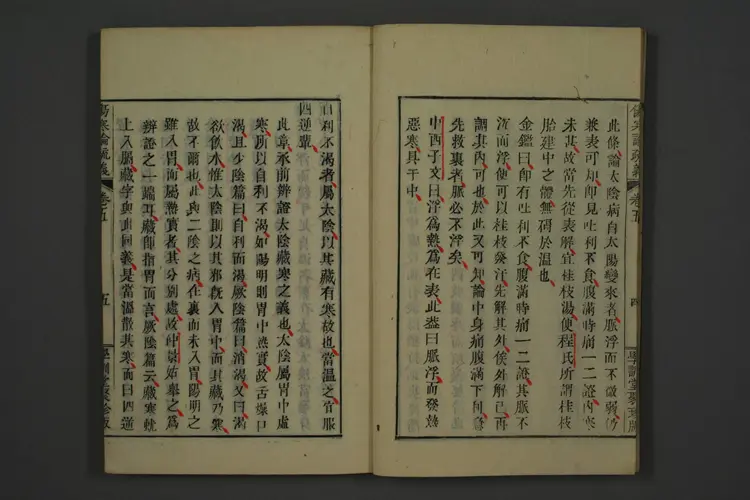 此條論太陰病自太陽變來者脈浮而不微弱
兼表可知即見吐利不食腹滿時痛一二證內寒
未甚故當先從表解宜桂枝湯便程氏所謂桂枝
胎建中之體無礙於溫也
金鑑曰即有吐利不食腹滿時痛一二證其脈不
沈而浮便可以桂枝發汗先解其外俟外解已再
調其內可也於此又可知論中身痛腹滿下利
先救裏者脈必不浮矣
中西子文曰浮為熱為在表此蓋曰脈浮而發熱
惡寒具于中
傷寒論疏義 卷五
四
自利不渴者屬太陰以其藏有寒故也當溫之宜服
四逆輩
此章承前辨證太陰藏寒之義也太陰屬胃中虛
寒所以自利不渴如陽明則胃中熱實故舌燥口
渴且少陰篇曰自利而渴厥陰篇曰消渴又曰渴
欲飲水惟太陰則以其邪既入胃中而其藏乃寒
故不爾也此與二陰之病在裏而未入胃陽明之
雖入胃而屬熱實者其分別處故仲景始舉之為
辨證之一端耳藏卽指胃而言厥陰篇云藏寒蚘
上入膈藏字與此同義是當溫散其寒而曰四逆
傷寒論疏義 卷五
五